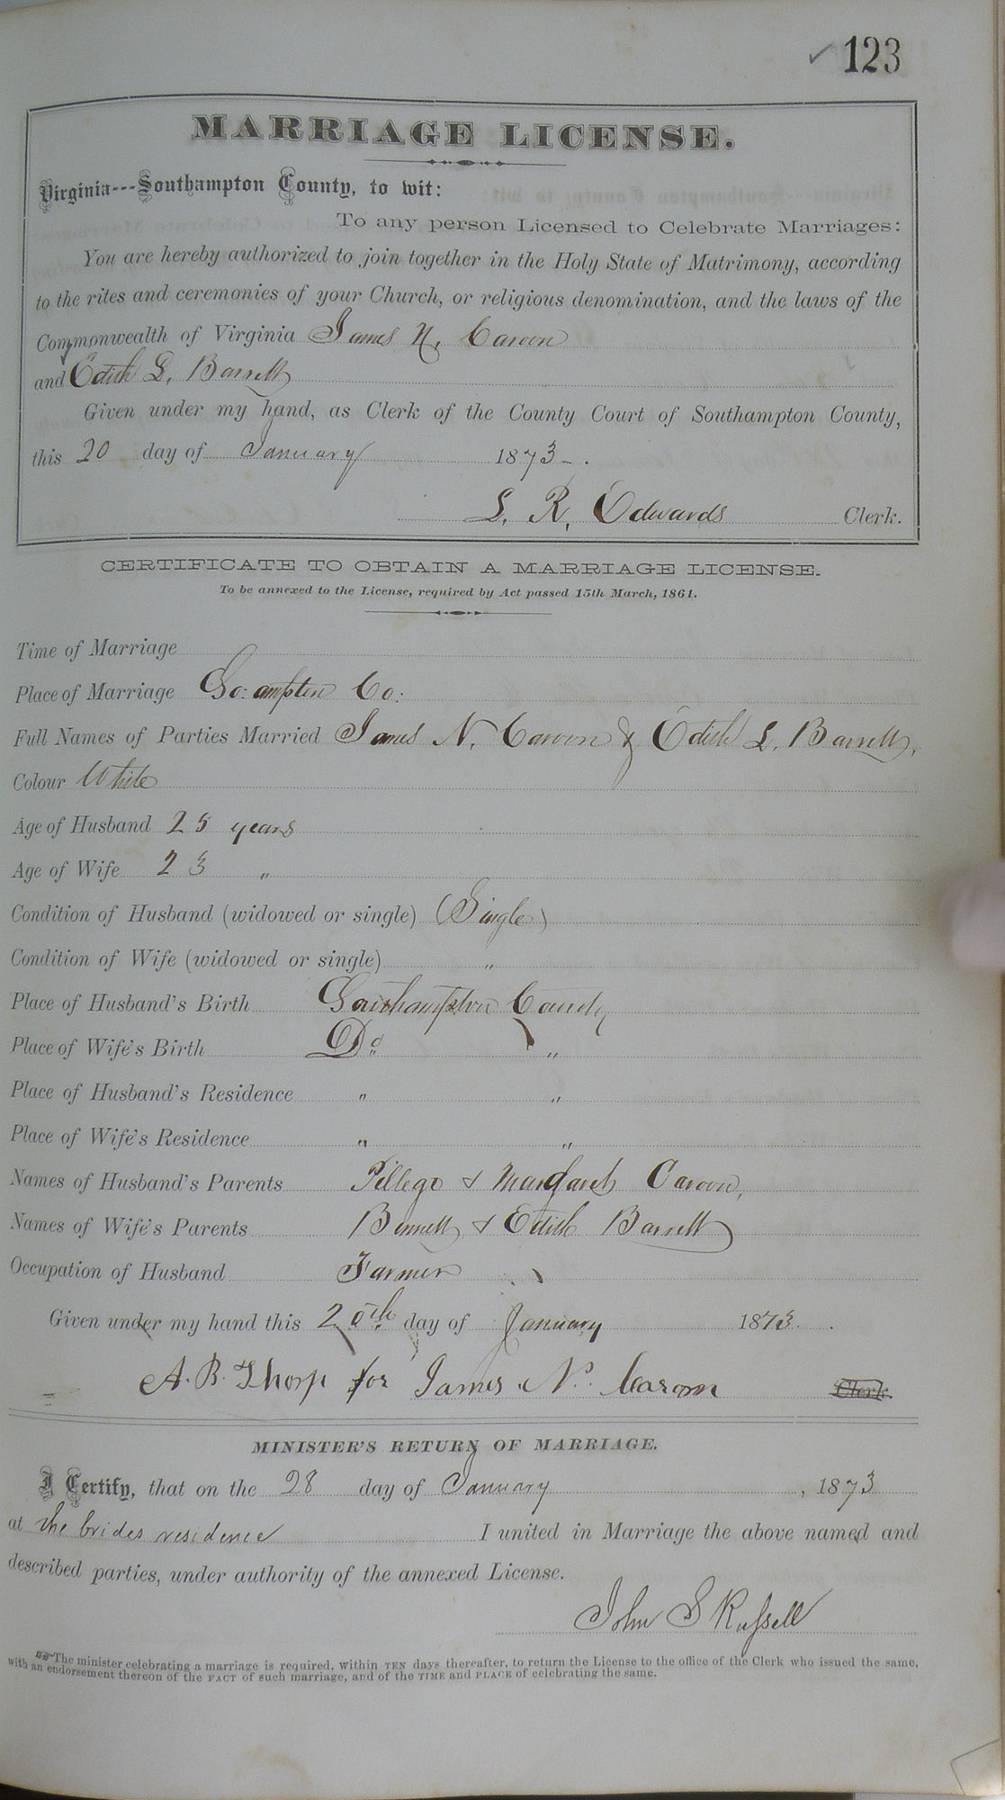 ✓ 123
MARRIAGE LICENSE.
Virginia---Southampton County, to wit:
To any person Licensed to Celebrate Marriages:
You are hereby authorized to join together in the Holy State of Matrimony, according
to the rites and ceremonies of your Church, or religious denomination, and the laws of the
Commonwealth of Virginia James N. Caroon
and Edith L. Barrett
Given under my hand, as Clerk of the County Court of Southampton County,
this 20 day of January 1873 - .
L. R. Edwards Clerk.
CERTIFICATE TO OBTAIN A MARRIAGE LICENSE.
To be annexed to the License, required by Act passed 15th March, 1861.
Time of Marriage
Place of Marriage So: ampton Co:
Full Names of Parties Married James N. Caroon & Edith L. Barrett,
Colour White
Age of Husband 25 years
Age of Wife 23 "
Condition of Husband (widowed or single) (Single)
Condition of Wife (widowed or single) "
Place of Husband's Birth Southampton County
Place of Wife's Birth Do "
Place of Husband's Residence " "
Place of Wife's Residence " "
Names of Husband's Parents & Margaret Caroon,
Names of Wife's Parents & Edith Barrett
Occupation of Husband Farmer
Given under my hand this 20th day of January 1873.
A. B. Thorp for James N. Caroon Clerk.
MINISTER'S RETURN OF MARRIAGE.
I Certify, that on the 28 day of January, 1873
at the brides residence I united in Marriage the above named and
described parties, under authority of the annexed License.
John S Russell
The minister celebrating a marriage is required, within TEN days thereafter, to return the License to the office of the Clerk who issued the same,
with an endorsement thereon of the FACT of such marriage, and of the TIME and PLACE of celebrating the same.